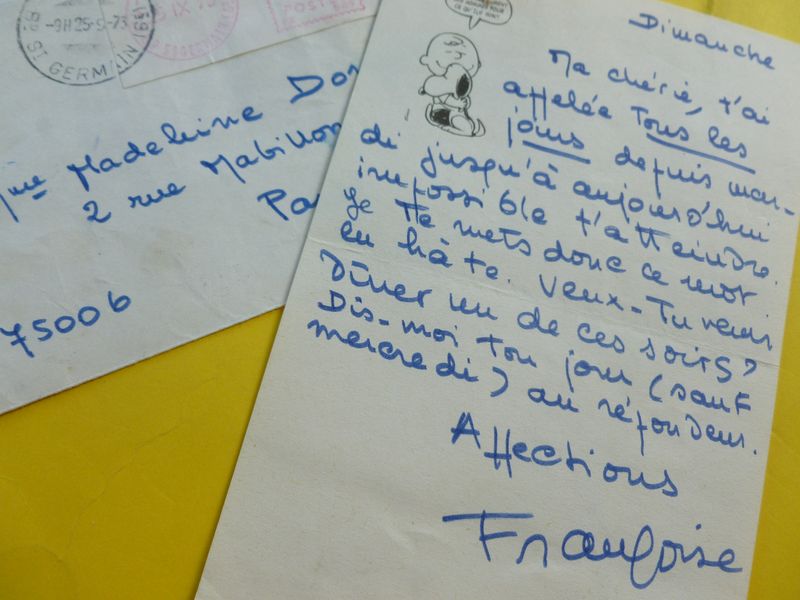 9H 25-9-73
ST GERMAIN
IX 73
POST
Mme Madeleine
2 rue Mabillon
75006
Dimanche
Ma chérie, t'ai
appelée Tous les
jours depuis mar-
di jusqu'à aujourd'hui
impossible t'atteindre.
Je Te mets donc ce mot
en hâte. Veux-Tu venir
Dîner un de ces soirs?
Dis-moi ton jour (sauf
mercredi) au répondeur.
Affections
Françoise